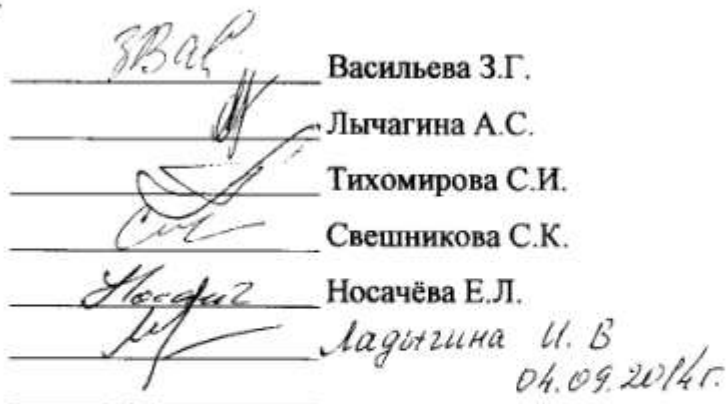 Васильева З.Г.
Лычагина А.С.
Тихомирова С.И.
Свешникова С.К.
Носачёва Е.Л.
Ладыгина И. В
04.09.2014г.